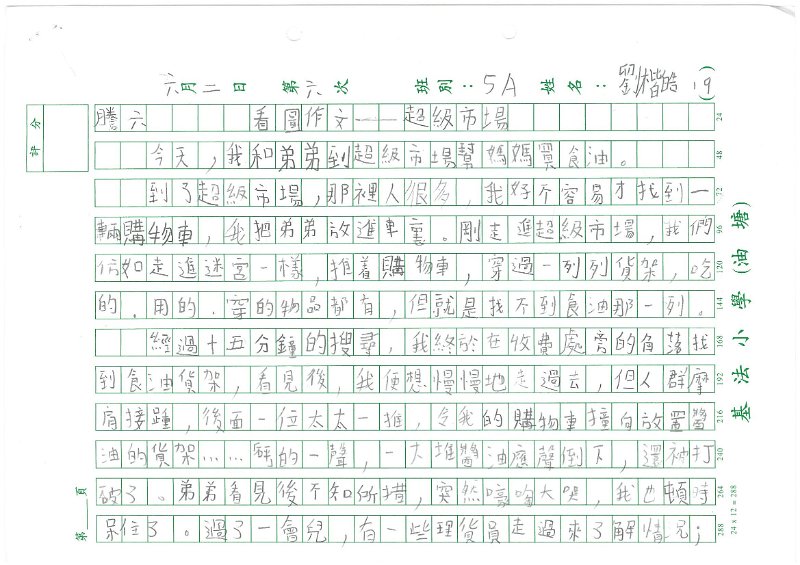 六月二日 第六次 班別：5A 姓名：劉楷皓（19）
評分
謄六 看圖作文——超級市場
今天，我和弟弟到超級市場幫媽媽買食油。
到了超級市場，那裡人很多，我好不容易才找到一
輛購物車，我把弟弟放進車裏。剛走進超級市場，我們
彷如走進迷宮一樣，推着購物車，穿過一列列貨架，吃
的．用的．穿的物品都有，但就是找不到食油那一列。
經過十五分鐘的搜尋，我終於在收費處旁的角落找
到食油貨架，看見後，我便想慢慢地走過去，但人群摩
肩接踵，後面一位太太一推，令我的購物車撞向放置醬
油的貨架……砰的一聲，一大堆醬油應聲倒下，還被打
破了。弟弟看見後不知所措，突然嚎啕大哭，我也頓時
呆住了。過了一會兒，有一些理貨員走過來了解情況；
24
48
72
96
120
144
168
192
216
240
264
288
24 x 12 = 288
基法小學（油塘）
第一頁